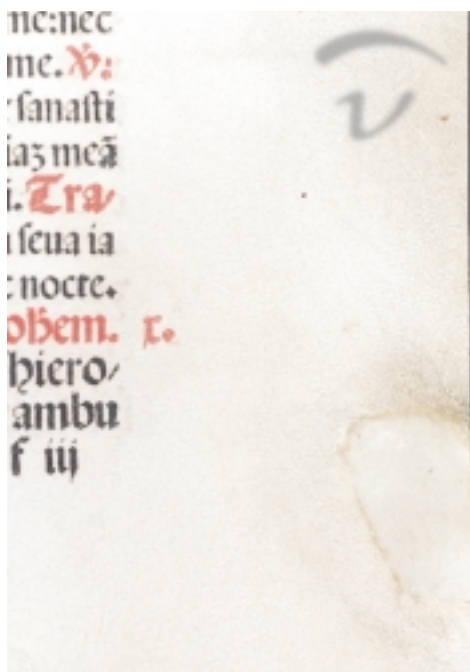 me:nec
me. ℣:
ſanaſti
iaꝫ meã
i. Tra/
ſeua ia
nocte.
ohem. x.
hiero/
ambu
f iij